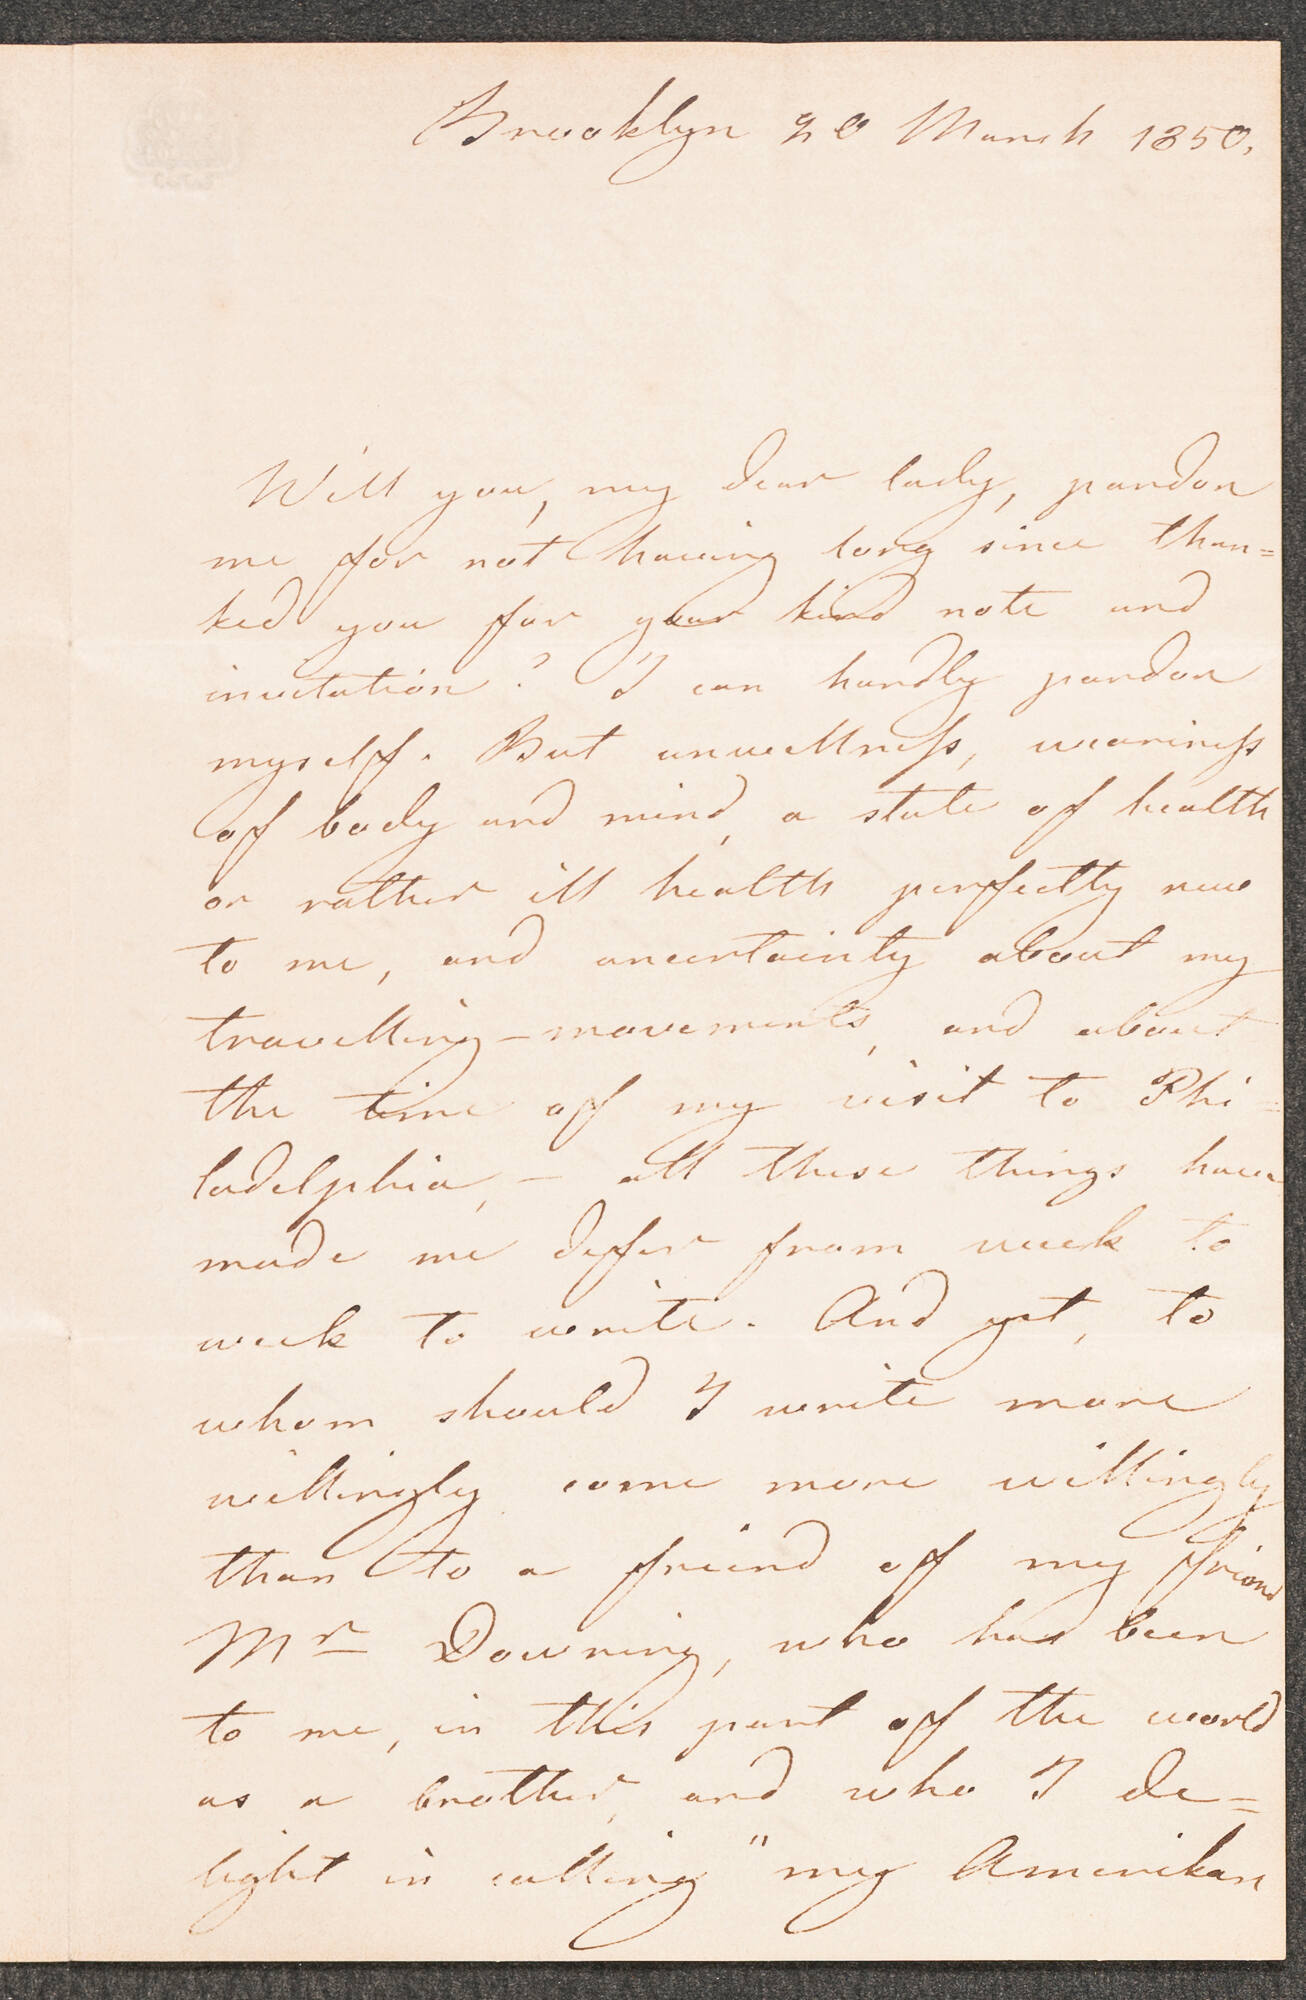 Brooklyn 20 March 1850.
Will you, my dear lady, pardon
me for not having long since than=
ked you for your kind note and
invitation? I can hardly pardon
myself. But unwellness, weariness
of body and mind, a state of health
or rather ill health perfectly new
to me, and uncertainty about my
travelling-movements, and about
the time of my visit to Phi=
ladelphia, - all these things have
made me defer from week to
week to write. And yet, to
whom should I write more
willingly come more willingly
than to a friend of my friend
Mr Downing, who has been
to me, in this part of the world
as a brother, and who I de=
light in calling "my Amerikan